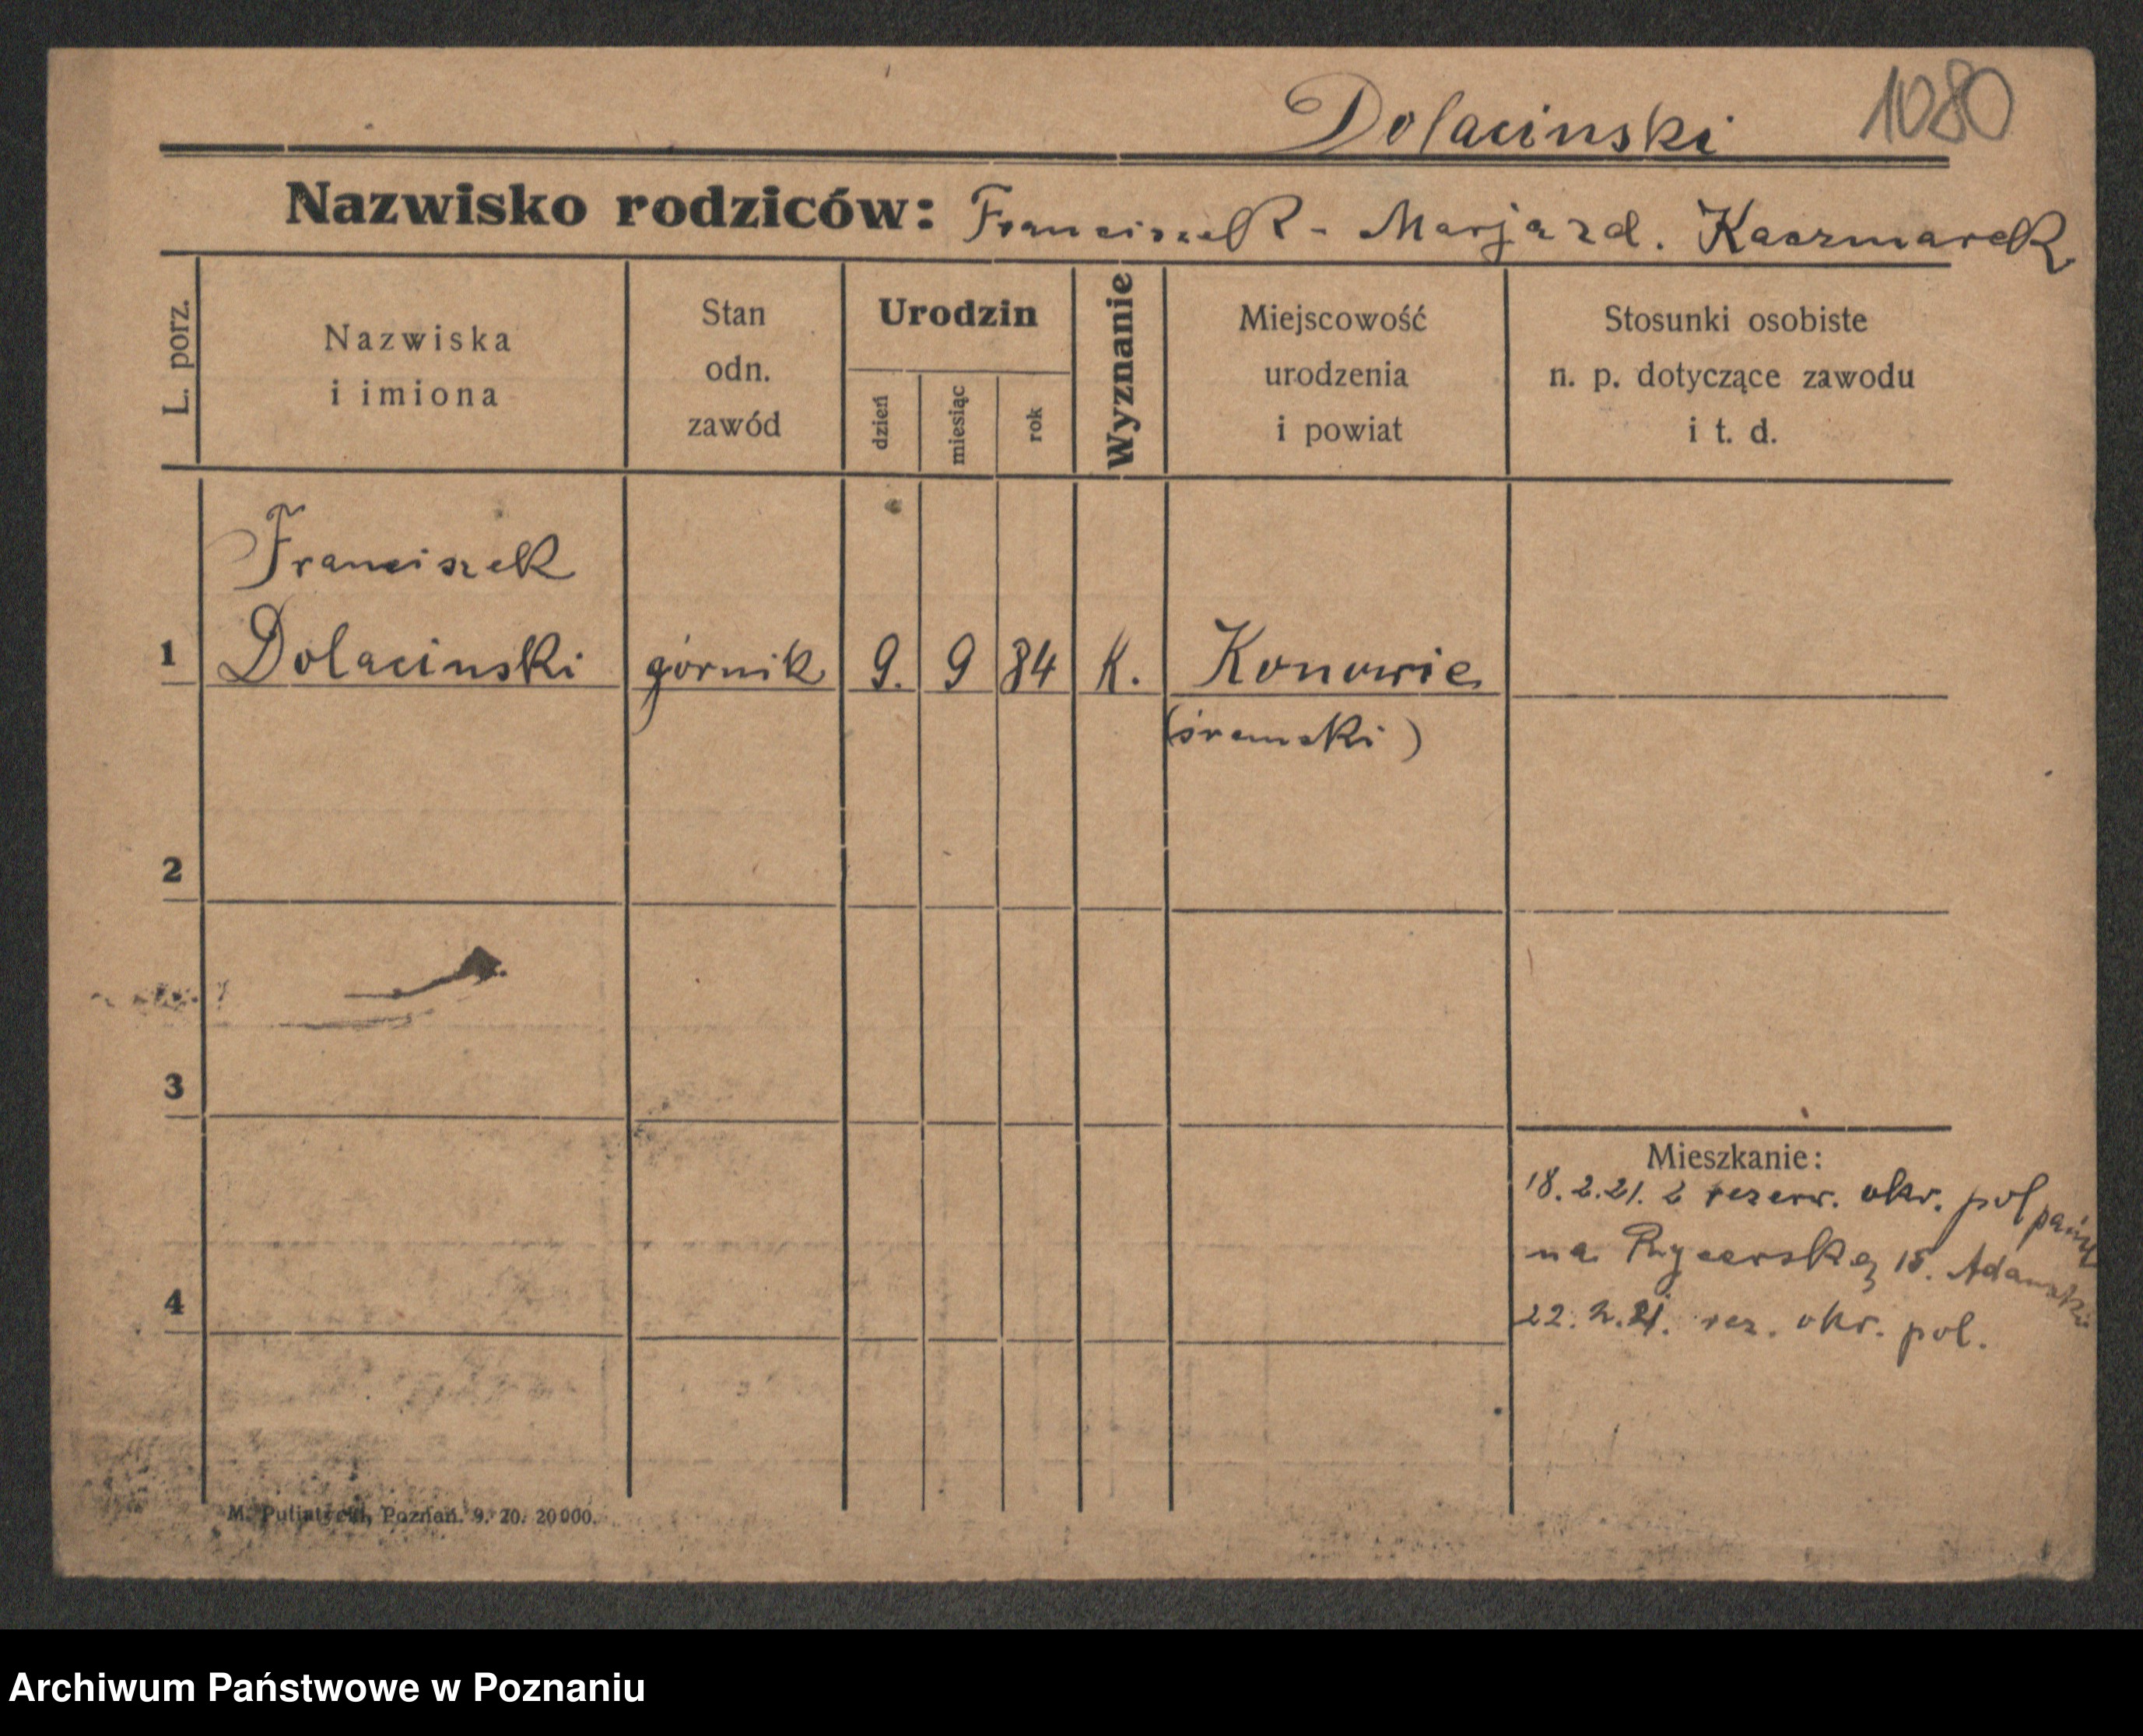 Dolacinski 1080
Nazwisko rodziców: Franciszek - Marja zd. Kaczmarek
L. porz.
Nazwiska
i imiona
Stan
odn.
zawód
Urodzin
dzień
miesiąc
rok
Wyznanie
Miejscowość
urodzenia
i powiat
Stosunki osobiste
n. p. dotyczące zawodu
i t. d.
Franciszek
1 Dolacinski górnik 9. 9 84 K. Konowie
(śremski)
2
3
4
Mieszkanie:
18.2.21. z rezerw. okr. pol
na Rycerską 15. Adamski
22.2.21. rez. okr. pol.
M. Putiatycki, Poznań. 9. 20. 20000.
Archiwum Państwowe w Poznaniu